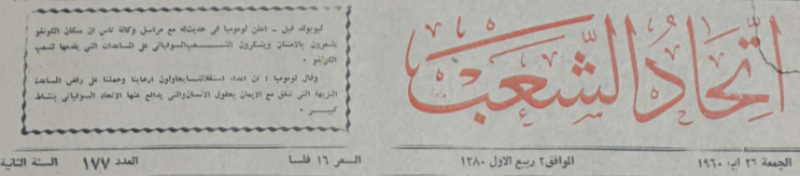 اتحاد الشعب
ليوبولد فيل - اعلن لومومبا في حديث له مع مراسل وكالة تاس ان سكان الكونغو
يشعرون بالامتنان ويشكرون الشعب السوفياتي على المساعدات التي يقدمها لشعب
الكونغو .
وقال لومومبا : ان اعداء استقلالنا يحاولون ارهابنا وحملنا على رفض المساعدة
النزيهة التي تتفق مع الايمان بحقوق الانسان والتي يدافع عنها الاتحاد السوفياتي بنشاط
كبير .
الجمعة ٢٦ اب ١٩٦٠ الموافق ٢ ربيع الاول ١٣٨٠ السعر ١٦ فلسا العدد ١٧٧ السنة الثانية